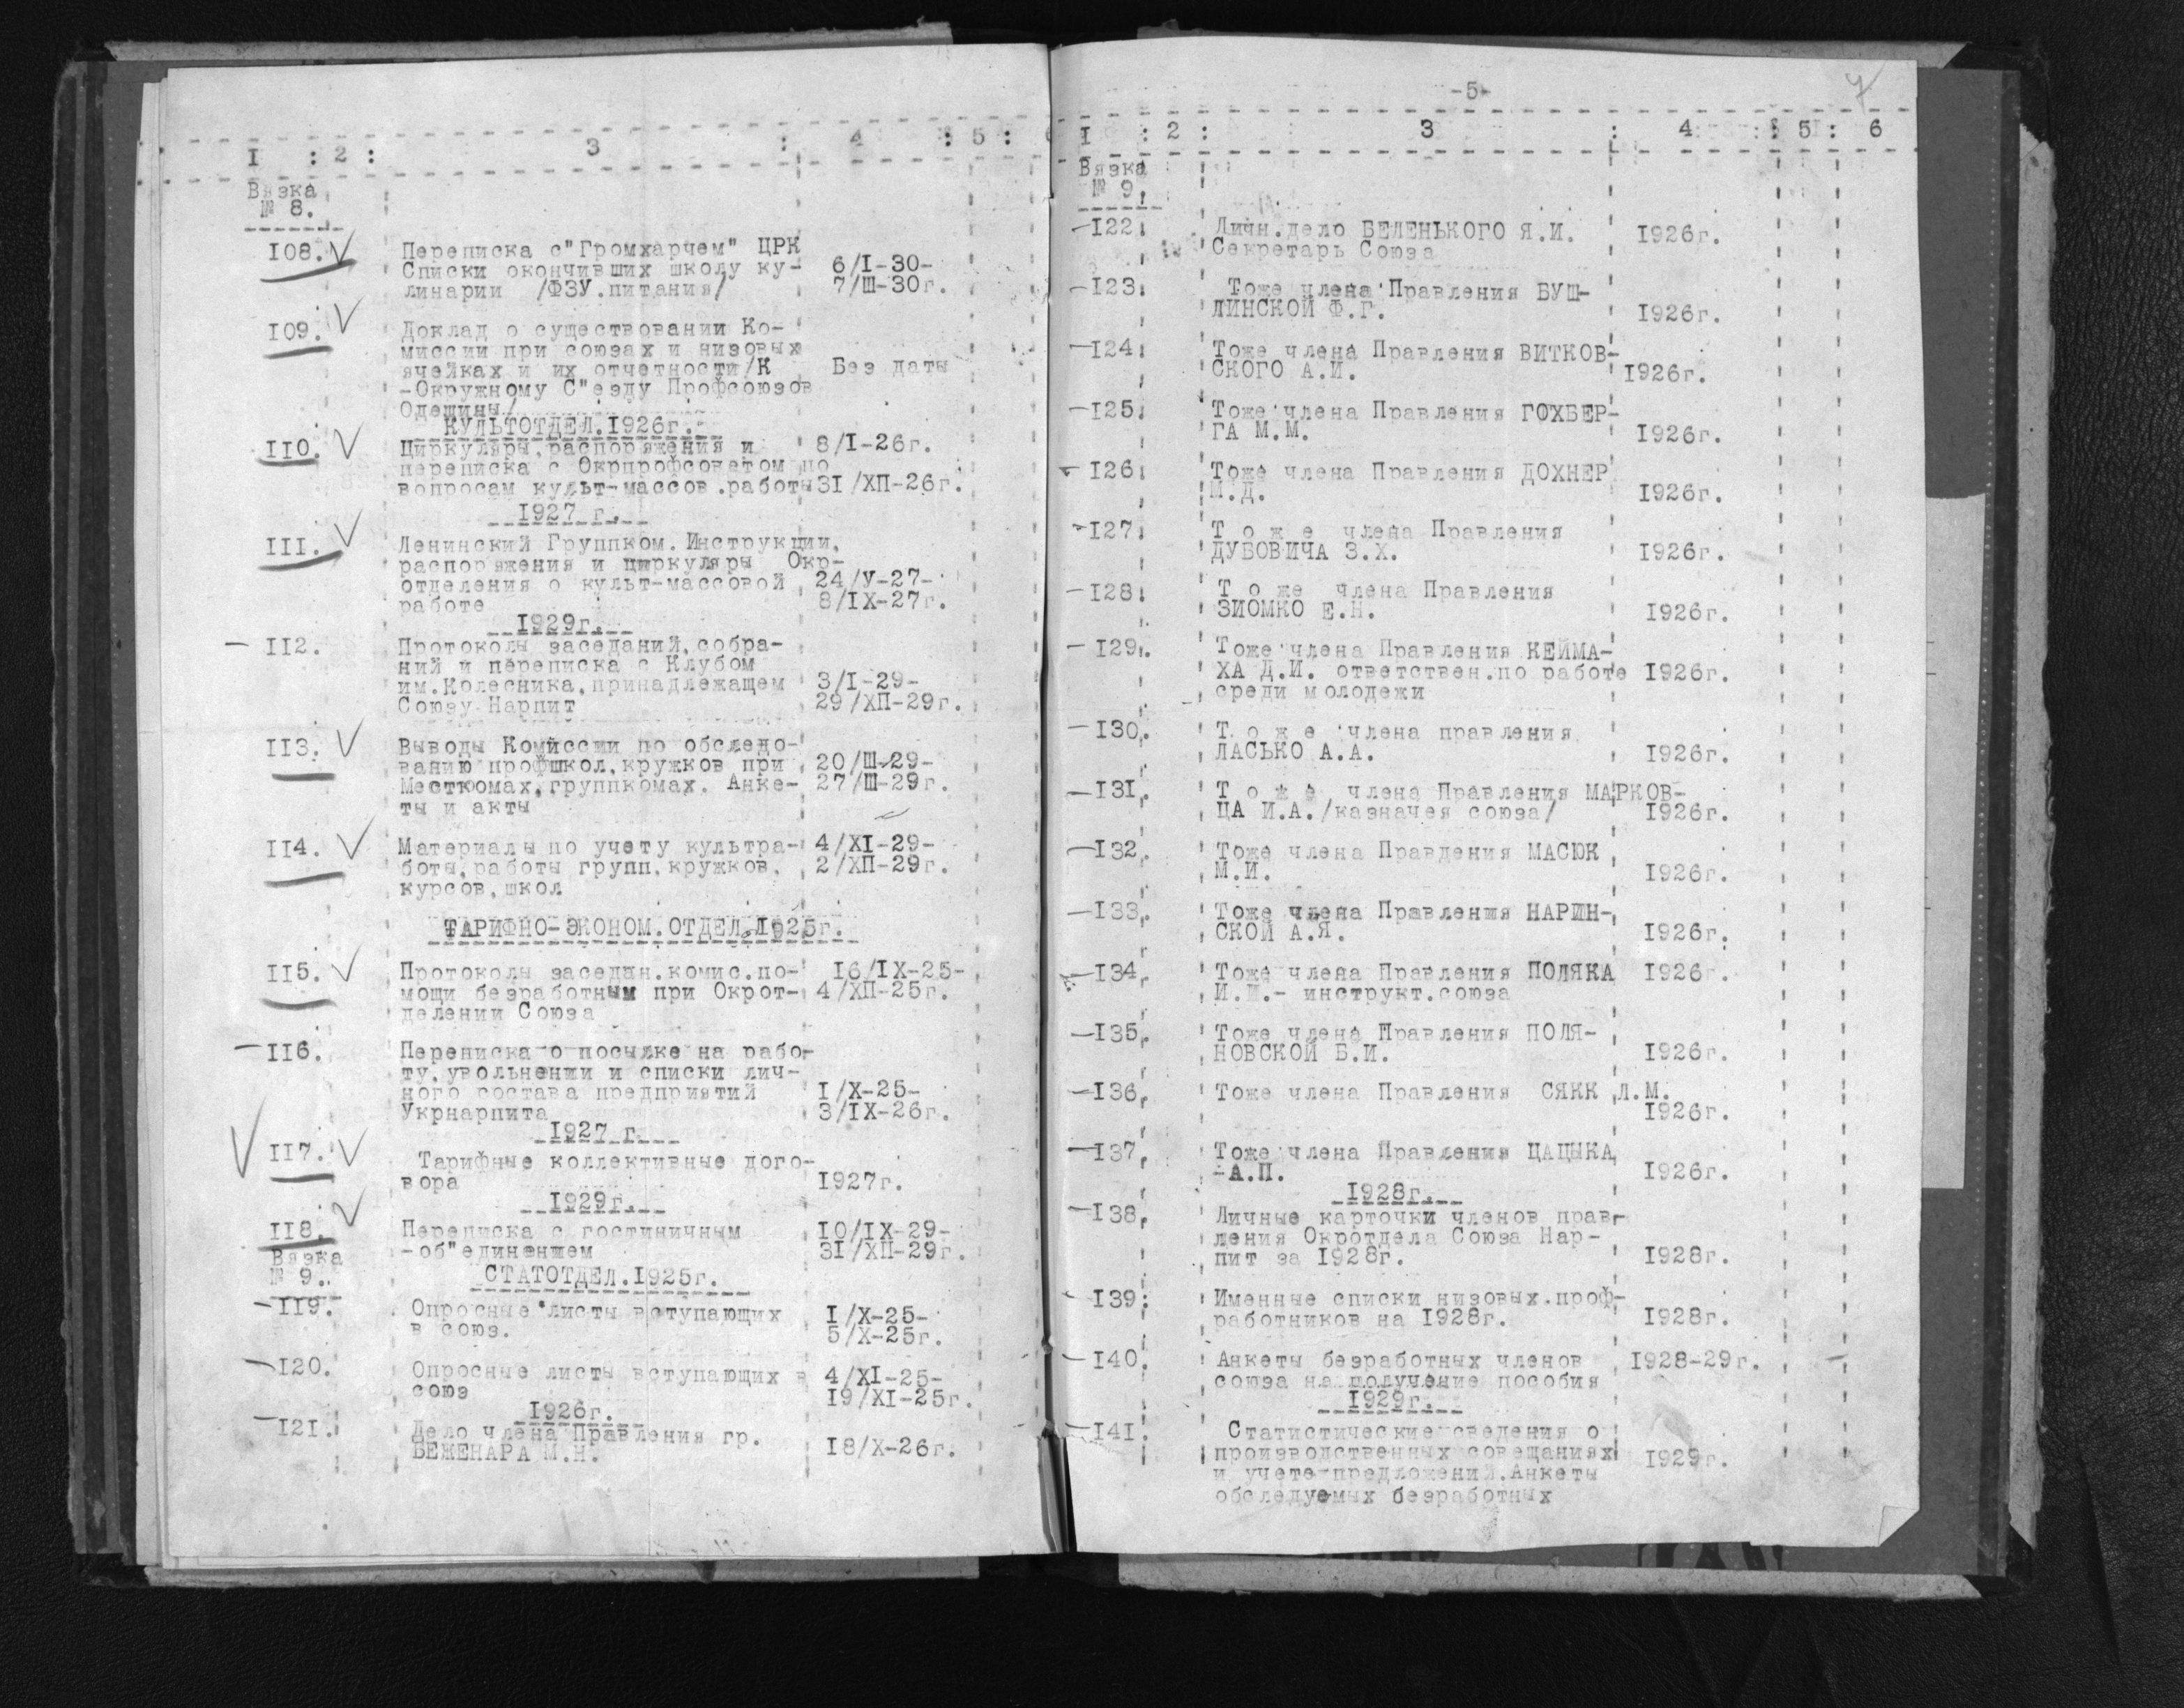 I : 2 : 3 : 4 : 5 :
Вязка
№ 8.
108. Переписка с"Громхарчем" ЦРК
Списки окончивших школу ку- 6/I-30-
линарии /ФЗУ.питания/ 7/Ш-30г.
109. Доклад о существовании Ко-
миссии при союзах и низовых
ячейках и их отчетности/К Без даты
-Окружному С"езду Профсоюзов
Одещины/
КУЛЬТОТДЕЛ.1926г.
110. Циркуляры,распоряжения и 8/I-26г.
переписка с Окрпрофсоветом по
вопросам культ-массов.работы 31/ХП-26г.
1927 г.
III. Ленинский Группком.Инструкции,
распоряжения и циркуляры Окр-
отделения о культ-массовой 24/У-27-
работе 8/IX-27г.
1929г.
112. Протоколы заседаний,собра-
ний и переписка с Клубом
им.Колесника,принадлежащем 3/I-29-
Союзу Нарпит 29/ХП-29г.
113. Выводы Комиссии по обследо-
ванию профшкол,кружков при 20/Ш-29-
Месткомах,группкомах. Анке- 27/Ш-29г.
ты и акты
114. Материалы по учету культра- 4/XI-29-
боты,работы групп,кружков, 2/ХП-29г.
курсов,школ
ТАРИФНО-ЭКОНОМ.ОТДЕЛ.1925г.
115. Протоколы заседан.комис.по- 16/IX-25-
мощи безработным при Окрот- 4/ХП-25г.
делении Союза
116. Переписка о посылке на рабо-
ту,увольнении и списки лич-
ного состава предприятий I/X-25-
Укрнарпита 3/IX-26г.
1927 г.
117. Тарифные коллективные дого-
вора 1927г.
1929г.
118. Переписка с гостиничным 10/IX-29-
-об"единением 31/ХП-29г.
Вязка
№ 9. СТАТОТДЕЛ.1925г.
119. Опросные листы вступающих I/X-25-
в союз. 5/X-25г.
120. Опросные листы вступающих в 4/XI-25-
союз 19/XI-25г.
1926г.
121. Дело члена Правления гр.
БЕЖЕНАРА М.Н. 18/X-26г.
-5- 7
I : 2 : 3 : 4 : 5 : 6
Вязка
№ 9.
122. Личн.дело БЕЛЕНЬКОГО Я.И. 1926г.
Секретарь Союза
123. Тоже члена Правления БУШ-
ЛИНСКОЙ Ф.Г. 1926г.
124. Тоже члена Правления ВИТКОВ-
СКОГО А.И. 1926г.
125. Тоже члена Правления ГОХБЕР-
ГА М.М. 1926г.
126. Тоже члена Правления ДОХНЕР
Ш.Д. 1926г.
127. Т о ж е члена Правления
ДУБОВИЧА З.Х. 1926г.
128. Т о же члена Правления
ЗИОМКО Е.Н. 1926г.
129. Тоже члена Правления КЕЙМА-
ХА Д.И. ответствен.по работе 1926г.
среди молодежи
130. Т о ж е члена правления
ЛАСЬКО А.А. 1926г.
131. Т о ж е члена Правления МАРКОВ-
ЦА И.А./казначея союза/ 1926г.
132. Тоже члена Правдения МАСЮК
М.И. 1926г.
133. Тоже члена Правления НАРИН-
СКОЙ А.Я. 1926г.
134. Тоже члена Правления ПОЛЯКА 1926г.
И.Ш.- инструкт.союза
135. Тоже члена Правления ПОЛЯ-
НОВСКОЙ Б.И. 1926г.
136. Тоже члена Правления СЯКК Л.М.
1926г.
137. Тоже члена Правления ЦАЦЫКА
-А.П. 1926г.
1928г.
138. Личные карточки членов прав-
ления Окротдела Союза Нар-
пит за 1928г. 1928г.
139. Именные списки низовых.проф-
работников на 1928г. 1928г.
140. Анкеты безработных членов 1928-29г.
союза на получение пособия
1929г.
141. Статистические сведения о
производственных совещаниях 1929г.
и учете предложений.Анкеты
обследуемых безработных